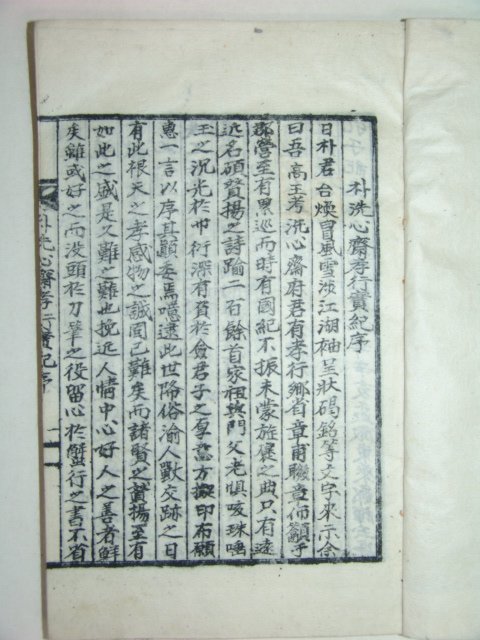 朴洗心齋孝行實紀序
日朴君台煥冒風雪涉江湖袖呈狀碣銘等文字來示余
曰吾高王考洗心齋府君有孝行鄕省章甫聯章佈籲于
營至有黑巡而時有國紀不振未蒙旌㫌之典只有遠
近名碩贊揚之詩踰二百餘首家祖與門父老懼咳珠唾
玉之沉光於巾衍深有資於僉君子之厚意方搬印布願
惠一言以序其顚委焉噫逮此世降俗渝人獸交跡之日
有此根天之孝感物之誠固已難矣而諸賢之贊揚至有
如此之盛是又難之難也挽近人情中心好人之善者鮮
矣雖或好之而沒頭於刀筆之役留心於蟹行之書不省
朴洗心齋孝行實紀序 一